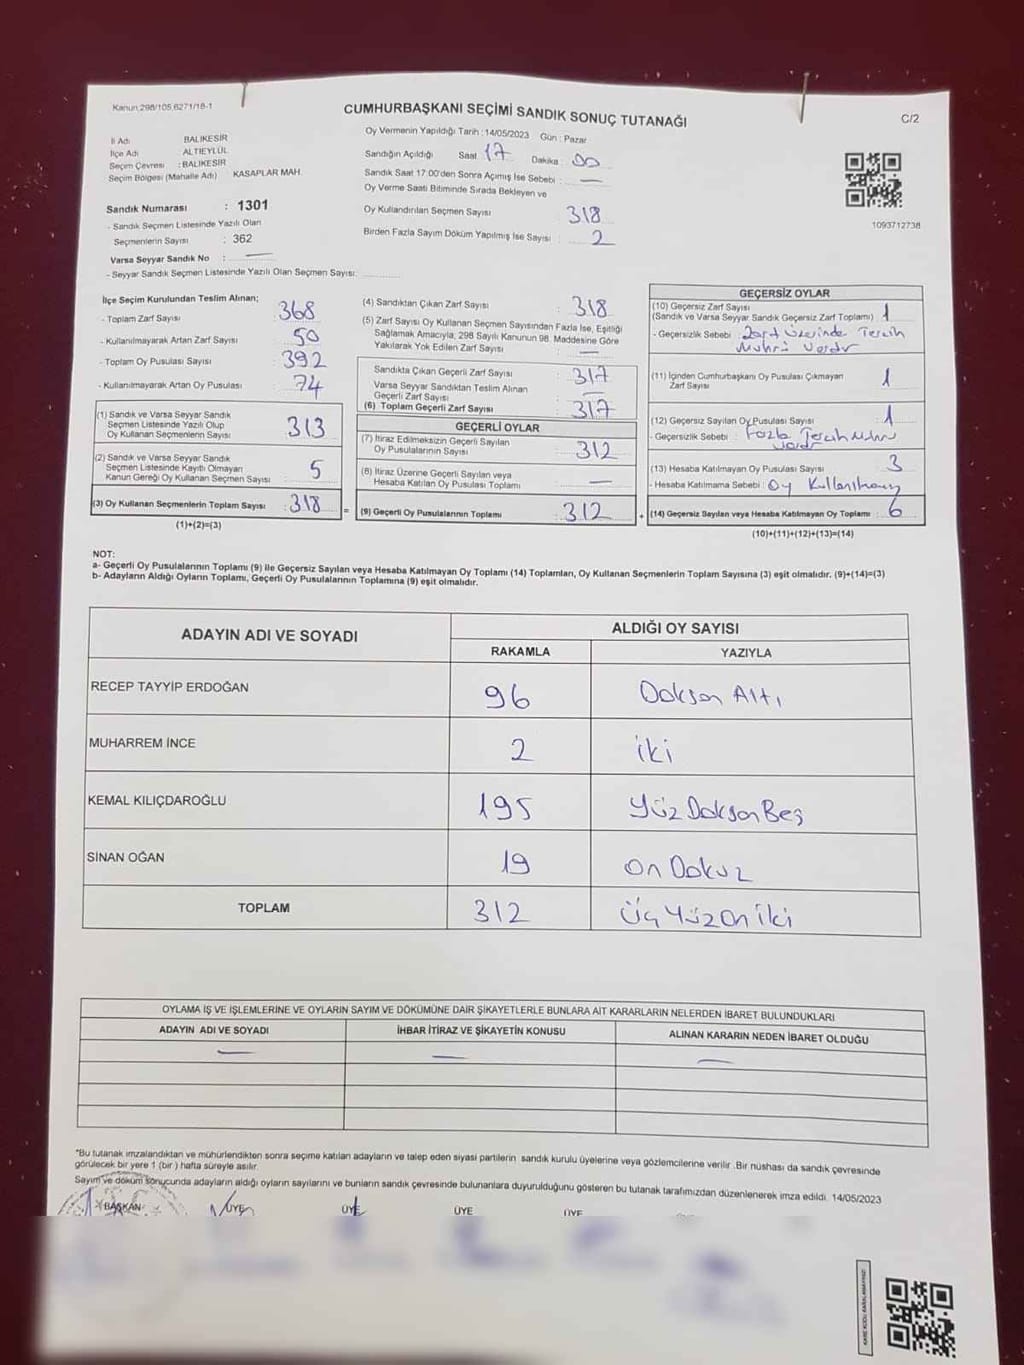 Kanun 298/105,6271/18-1
CUMHURBAŞKANI SEÇİMİ SANDIK SONUÇ TUTANAĞI
C/2
İl Adı BALIKESİR
İlçe Adı ALTIEYLÜL
Seçim Çevresi : BALIKESİR
Seçim Bölgesi (Mahalle Adı) KASAPLAR MAH.
Sandık Numarası : 1301
- Sandık Seçmen Listesinde Yazılı Olan
Seçmenlerin Sayısı : 362
Varsa Seyyar Sandık No : —
- Seyyar Sandık Seçmen Listesinde Yazılı Olan Seçmen Sayısı:
Oy Vermenin Yapıldığı Tarih : 14/05/2023 Gün : Pazar
Sandığın Açıldığı Saat : 17 Dakika : 00
Sandık Saat 17:00'den Sonra Açımış İse Sebebi : —
Oy Verme Saati Bitiminde Sırada Bekleyen ve
Oy Kullandırılan Seçmen Sayısı 318
Birden Fazla Sayım Döküm Yapılmış İse Sayısı : 2
1093712738
İlçe Seçim Kurulundan Teslim Alınan;
- Toplam Zarf Sayısı : 368
- Kullanılmayarak Artan Zarf Sayısı : 50
- Toplam Oy Pusulası Sayısı : 392
- Kullanılmayarak Artan Oy Pusulası : 74
(1) Sandık ve Varsa Seyyar Sandık
Seçmen Listesinde Yazılı Olup
Oy Kullanan Seçmenlerin Sayısı : 313
(2) Sandık ve Varsa Seyyar Sandık
Seçmen Listesinde Kayıtlı Olmayan
Kanun Gereği Oy Kullanan Seçmen Sayısı : 5
(3) Oy Kullanan Seçmenlerin Toplam Sayısı : 318
(1)+(2)=(3)
(4) Sandıktan Çıkan Zarf Sayısı : 318
(5) Zarf Sayısı Oy Kullanan Seçmen Sayısından Fazla İse, Eşitliği
Sağlamak Amacıyla, 298 Sayılı Kanunun 98. Maddesine Göre
Yakılarak Yok Edilen Zarf Sayısı : —
Sandıkta Çıkan Geçerli Zarf Sayısı : 317
Varsa Seyyar Sandıktan Teslim Alınan
Geçerli Zarf Sayısı : —
(6) Toplam Geçerli Zarf Sayısı : 317
GEÇERLİ OYLAR
(7) İtiraz Edilmeksizin Geçerli Sayılan
Oy Pusulalarının Sayısı : 312
(8) İtiraz Üzerine Geçerli Sayılan veya
Hesaba Katılan Oy Pusulası Toplamı : —
= (9) Geçerli Oy Pusulalarının Toplamı : 312
GEÇERSİZ OYLAR
(10) Geçersiz Zarf Sayısı
(Sandık ve Varsa Seyyar Sandık Geçersiz Zarf Toplamı) : 1
- Geçersizlik Sebebi : Zarf Üzerinde Tercih
Mührü Vardır
(11) İçinden Cumhurbaşkanı Oy Pusulası Çıkmayan
Zarf Sayısı : 1
(12) Geçersiz Sayılan Oy Pusulası Sayısı : 1
- Geçersizlik Sebebi : Fazla Tercih Mührü
Vardır
(13) Hesaba Katılmayan Oy Pusulası Sayısı : 3
- Hesaba Katılmama Sebebi : Oy
+ (14) Geçersiz Sayılan veya Hesaba Katılmayan Oy Toplamı : 6
(10)+(11)+(12)+(13)=(14)
NOT:
a- Geçerli Oy Pusulalarının Toplamı (9) ile Geçersiz Sayılan veya Hesaba Katılmayan Oy Toplamı (14) Toplamları, Oy Kullanan Seçmenlerin Toplam Sayısına (3) eşit olmalıdır. (9)+(14)=(3)
b- Adayların Aldığı Oyların Toplamı, Geçerli Oy Pusulalarının Toplamına (9) eşit olmalıdır.
ADAYIN ADI VE SOYADI
ALDIĞI OY SAYISI
RAKAMLA YAZIYLA
RECEP TAYYİP ERDOĞAN 96 Doksan Altı
MUHARREM İNCE 2 iki
KEMAL KILIÇDAROĞLU 195 Yüz Doksan Beş
SİNAN OĞAN 19 on Dokuz
TOPLAM 312 Üç Yüz On İki
OYLAMA İŞ VE İŞLEMLERİNE VE OYLARIN SAYIM VE DÖKÜMÜNE DAİR ŞİKAYETLERLE BUNLARA AİT KARARLARIN NELERDEN İBARET BULUNDUKLARI
ADAYIN ADI VE SOYADI İHBAR İTİRAZ VE ŞİKAYETİN KONUSU ALINAN KARARIN NEDEN İBARET OLDUĞU
— — —
*Bu tutanak imzalandıktan ve mühürlendikten sonra seçime katılan adayların ve talep eden siyasi partilerin sandık kurulu üyelerine veya gözlemcilerine verilir. Bir nüshası da sandık çevresinde
görülecek bir yere 1 (bir ) hafta süreyle asılır.
Sayım ve döküm sonucunda adayların aldığı oyların sayılarını ve bunların sandık çevresinde bulunanlara duyurulduğunu gösteren bu tutanak tarafımızdan düzenlenerek imza edildi. 14/05/2023
BAŞKAN ÜYE ÜYE ÜYE ÜYE